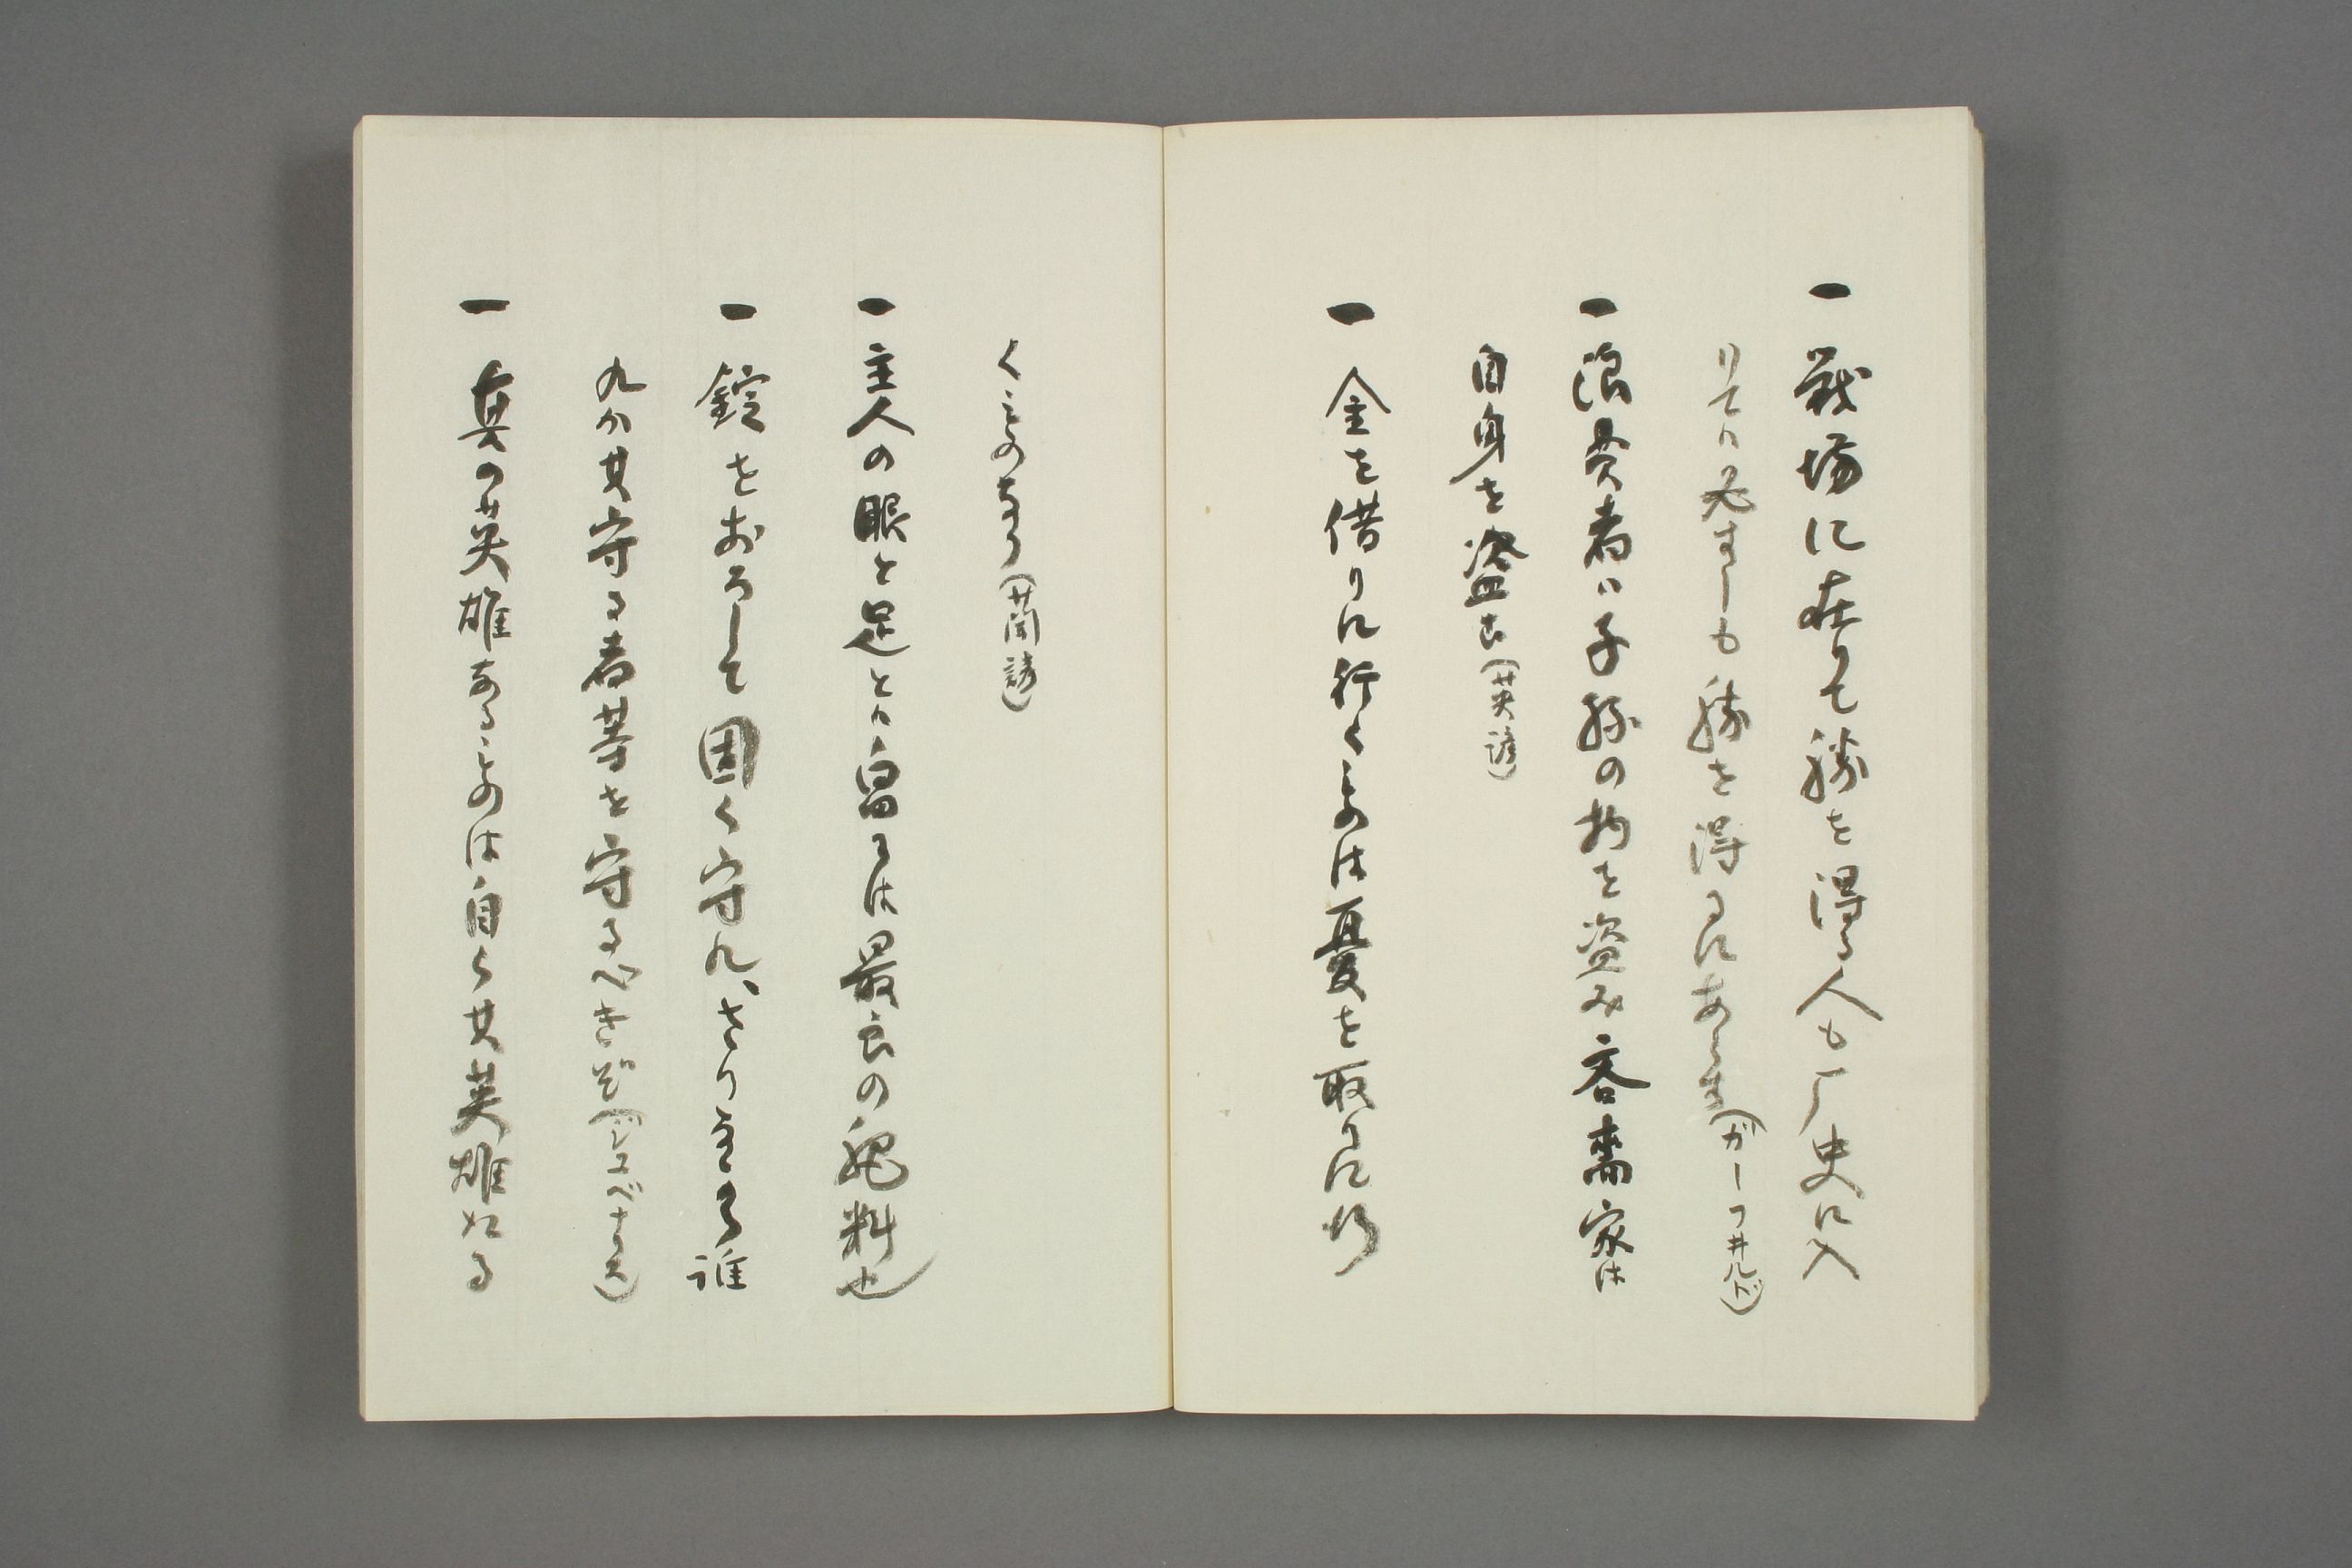 一 戦場に在りて勝を得る人も歴史に入
りては必ずしも勝を得るにあらず(ガーフ井ルド)
一 浪費者ハ子孫の物を盗み吝嗇家は
自身を盗む(英諺)
一 金を借りに行くものは憂を取りに行
くものなり(英国諺)
一 主人の眼と足とハ畠には最良の肥料也
一 錠をおろして固く守れ、さり乍ら誰
れか其守る者等を守るべきぞ(ジュベナース)
一 真の英雄なるものは自ら其英雄たる